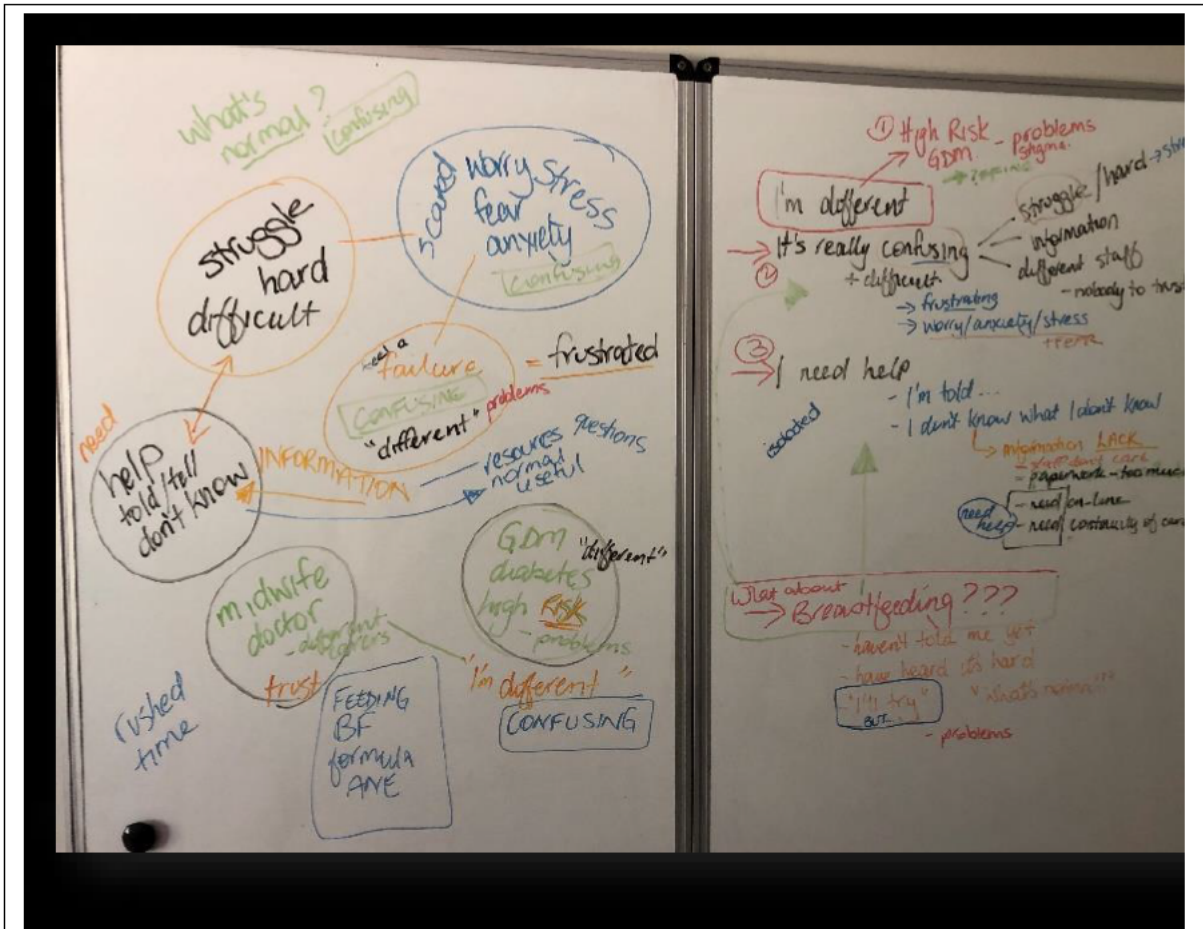 what's
normal?
confusing
struggle
hard
difficult
scared
worry stress
fear
anxiety
confusing
feel a
failure
CONFUSING
"different" problems
= frustrated
need
help
told/tell
don't know
INFORMATION
resources questions
normal
useful
midwife
doctor
- different
trust
GDM
diabetes
high RISK
- problems
"different"
"I'm different"
CONFUSING
FEEDING
BF
formula
ANE
rushed
time
① High Risk
GDM - problems
stigma
I'm different
② It's really confusing
+ difficult
struggle/hard
information
different staff
- nobody to trust
→ frustrating
→ worry/anxiety/stress
③ I need help
isolated
- I'm told ...
- I don't know what I don't know
→ information LACK
- staff don't care
- paperwork - too much
- need on-line
need
help
- need
What about
→ Breastfeeding ???
- haven't told me yet
- have heard it's hard
- "I'll try"
BUT
- problems